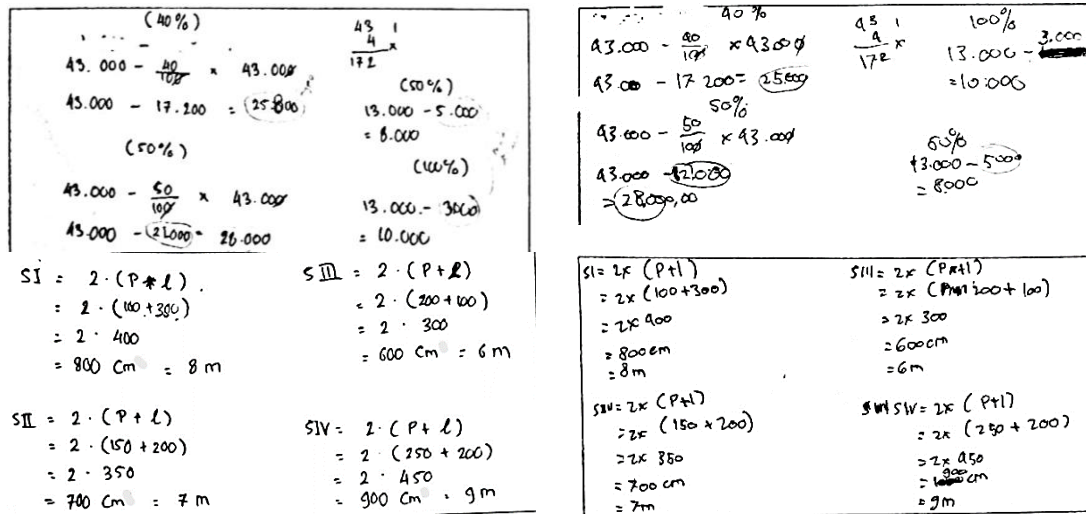 (40%)
43.000 - 40/100 × 43.000
43.000 - 17.200 = 25.800
(50%)
43.000 - 50/100 × 43.000
43.000 - 21.000 = 28.000
43 1
4 ×
172
(50%)
13.000 - 5.000
= 8.000
(100%)
13.000.- 3000
= 10.000
40%
43.000 - 40/100 × 43.000
43.000 - 17 200 = 25.800
50%
43.000 - 50/100 × 43.000
43.000 - 21.000
= 28.000,00
43 1
4 ×
172
100%
13.000 - 3.000
= 10.000
50%
13.000 - 5000
= 8000
SI = 2 . (P + l) .
= 2 . (100 + 300)
= 2 . 400
= 800 Cm = 8 m
SII = 2 . (P + l)
= 2 . (150 + 200)
= 2 . 350
= 700 Cm = 7 m
SIII = 2 . (P + l)
= 2 . (200 + 100)
= 2 . 300
= 600 Cm = 6 m
SIV = 2 . (P + l)
= 2 . (250 + 200)
= 2 . 450
= 900 Cm = 9 m
SI = 2x (P+l)
= 2x (100+300)
= 2x 400
= 800 cm
= 8m
= 2x (P+l)
= 2x (150 + 200)
= 2x 350
= 700 cm
= 7m
SIII = 2x (P+l)
= 2x (200 + 100)
= 2x 300
= 600 cm
= 6m
SIV = 2x (P+l)
= 2x (250 + 200)
= 2x 450
= 900 cm
= 9m